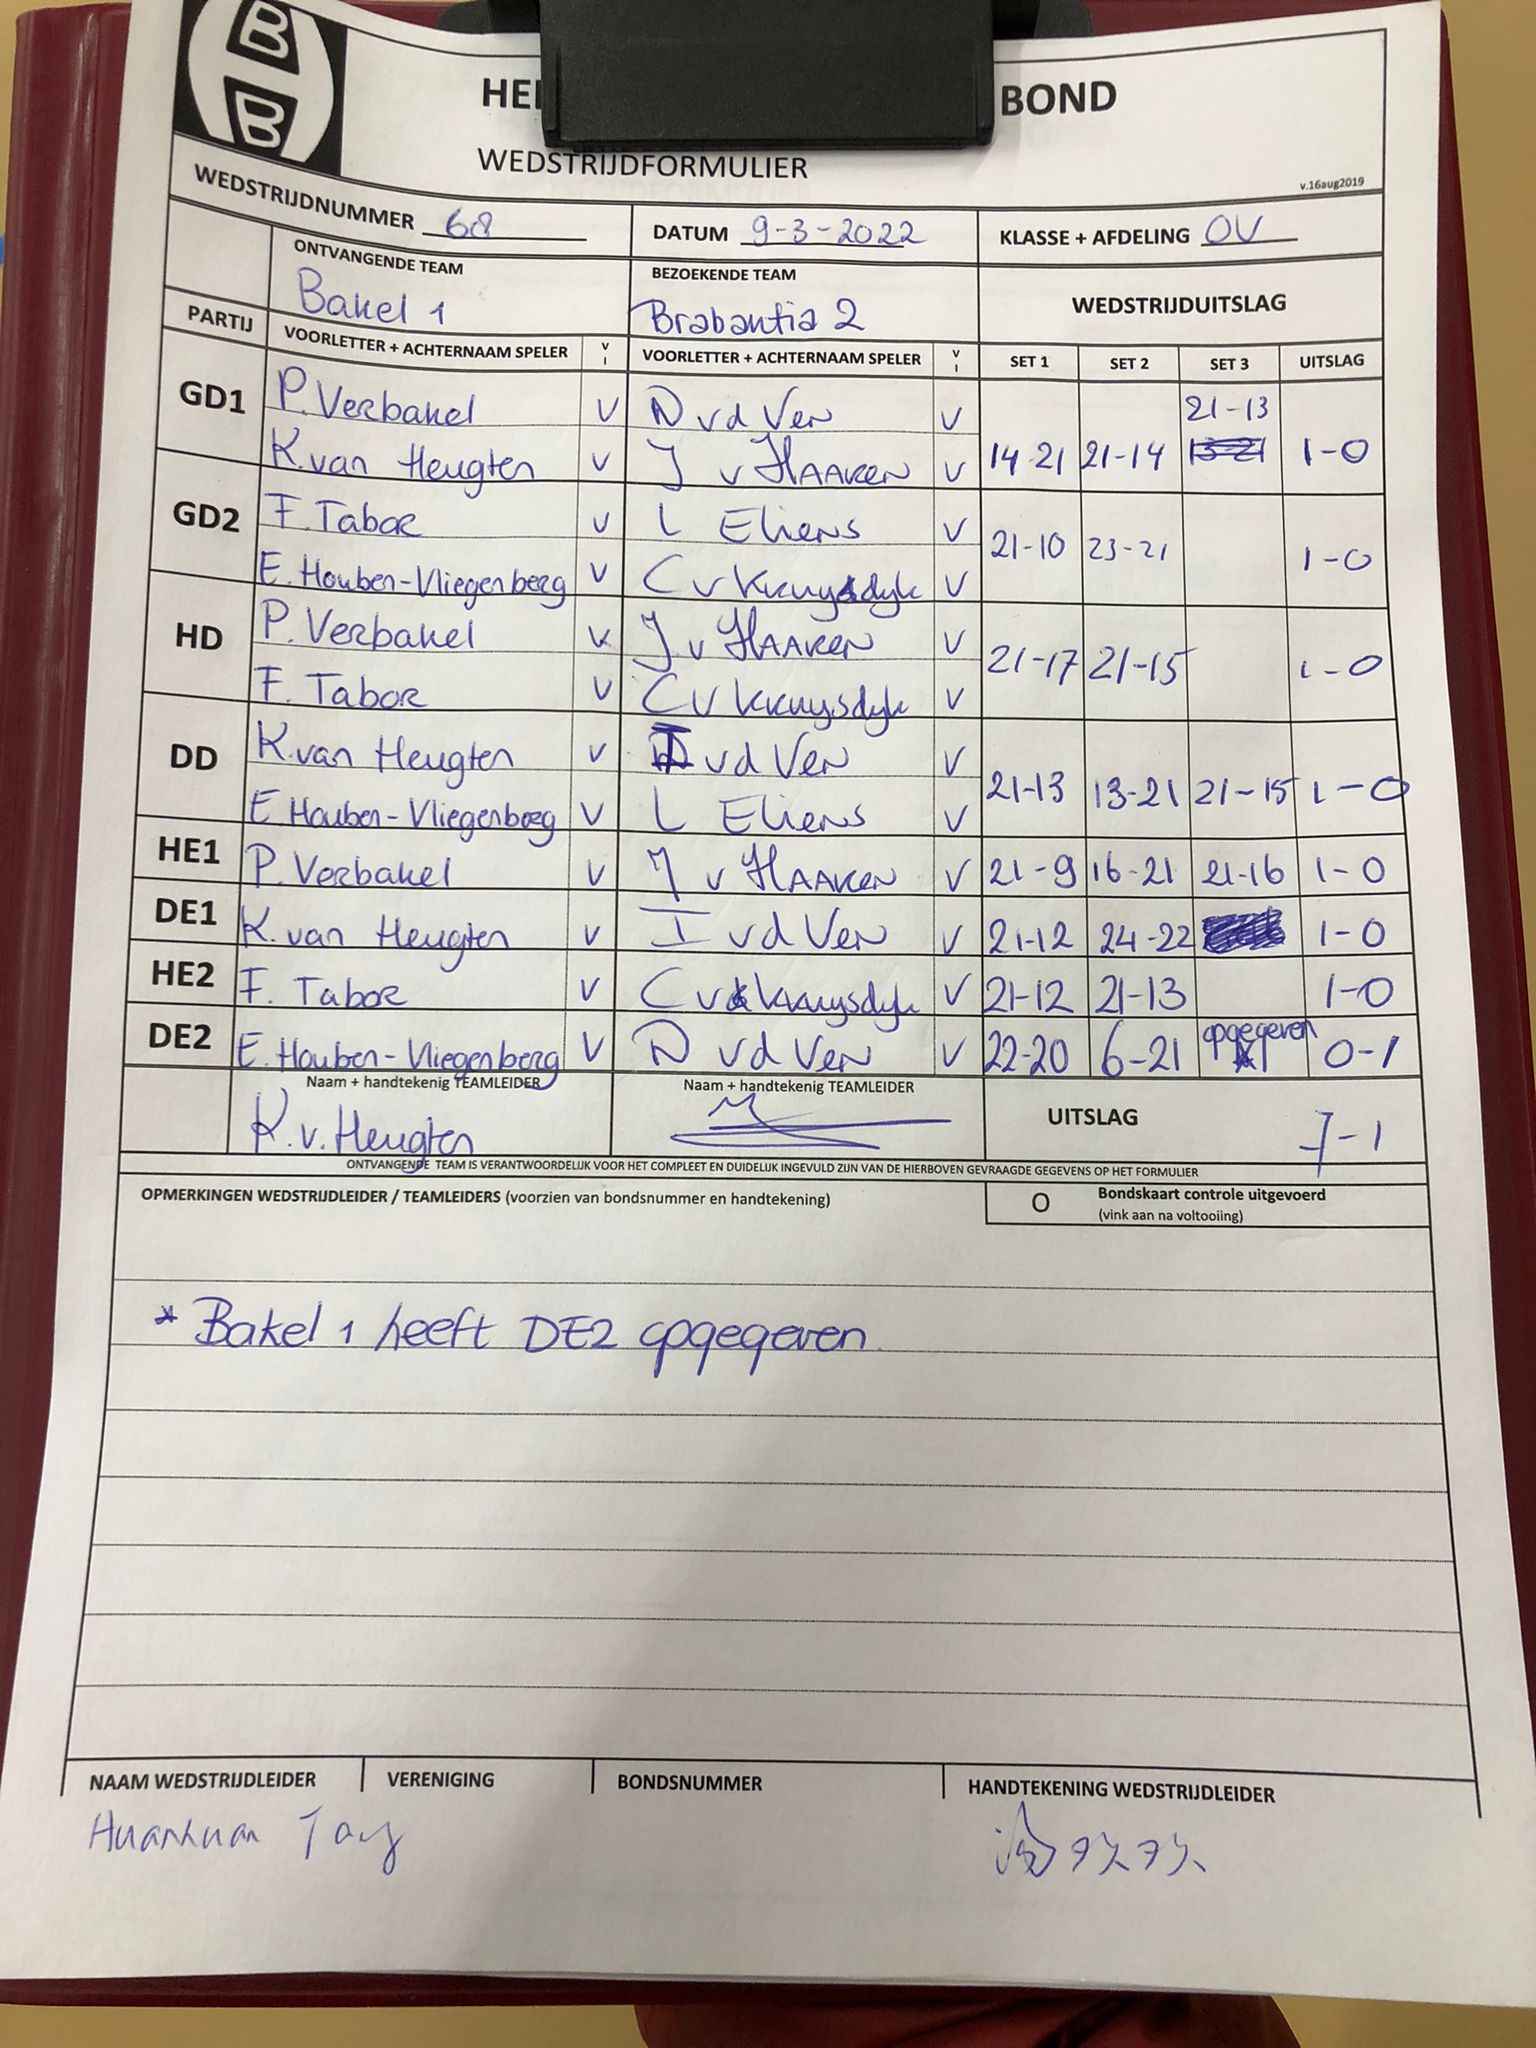 B
B
BOND
WEDSTRIJDFORMULIER
v.16aug2019
WEDSTRIJDNUMMER 68 DATUM 9-3-2022 KLASSE + AFDELING OV
ONTVANGENDE TEAM BEZOEKENDE TEAM WEDSTRIJDUITSLAG
Bakel 1 Brabantia 2
PARTIJ VOORLETTER + ACHTERNAAM SPELER V I VOORLETTER + ACHTERNAAM SPELER V I SET 1 SET 2 SET 3 UITSLAG
GD1 P. Verbakel V N vd Ven V 21-13
K. van Heugten V J v HAAREN V 14-21 21-14 13-21 1-0
GD2 F. Tabor V L Eliens V 21-10 23-21 1-0
E. Houben-Vliegenberg V C v Kruysdyk V
HD P. Verbakel V J v HAAREN V 21-17 21-15 1-0
F. Tabor V C v Kruysdyk V
DD K. van Heugten V I vd Ven V 21-13 13-21 21-15 1-0
E Houben-Vliegenberg V L Eliens V
HE1 P. Verbakel V J v HAAREN V 21-9 16-21 21-16 1-0
DE1 K. van Heugten V I vd Ven V 21-12 24-22 1-0
HE2 F. Tabor V C v Kruysdyk V 21-12 21-13 1-0
DE2 E. Houben-Vliegenberg V N vd Ven V 22-20 6-21 opgegeven * 0-1
Naam + handtekenig TEAMLEIDER Naam + handtekenig TEAMLEIDER UITSLAG 7-1
K. v. Heugten
ONTVANGENDE TEAM IS VERANTWOORDELIJK VOOR HET COMPLEET EN DUIDELIJK INGEVULD ZIJN VAN DE HIERBOVEN GEVRAAGDE GEGEVENS OP HET FORMULIER
OPMERKINGEN WEDSTRIJDLEIDER / TEAMLEIDERS (voorzien van bondsnummer en handtekening) O Bondskaart controle uitgevoerd
(vink aan na voltooiing)
* Bakel 1 heeft DE2 opgegeven
NAAM WEDSTRIJDLEIDER VERENIGING BONDSNUMMER HANDTEKENING WEDSTRIJDLEIDER
Huanhuan